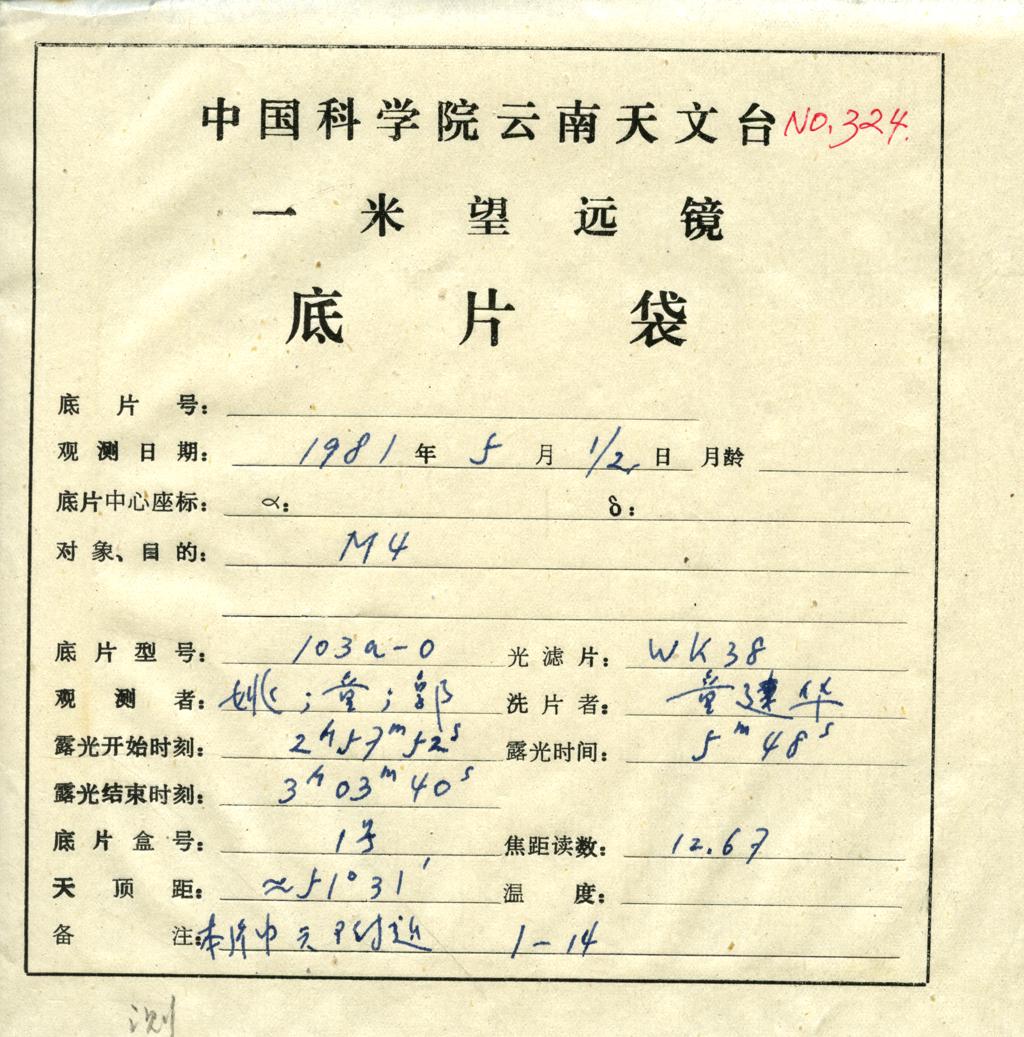 中国科学院云南天文台 NO.324.
一米望远镜
底片袋
底片号:
观测日期: 1981年 5月 1/2.日 月龄
底片中心座标: α: δ:
对象、目的: M4
底片型号: 103a-O 光滤片: WK38
观测者: 姚;童;郭 洗片者: 童建华
露光开始时刻: 2h57m52s 露光时间: 5m48s
露光结束时刻: 3h03m40s
底片盒号: 1号 焦距读数: 12.67
天顶距: ≈51°31′ 温度:
备注: 本片中天附近 1-14
测